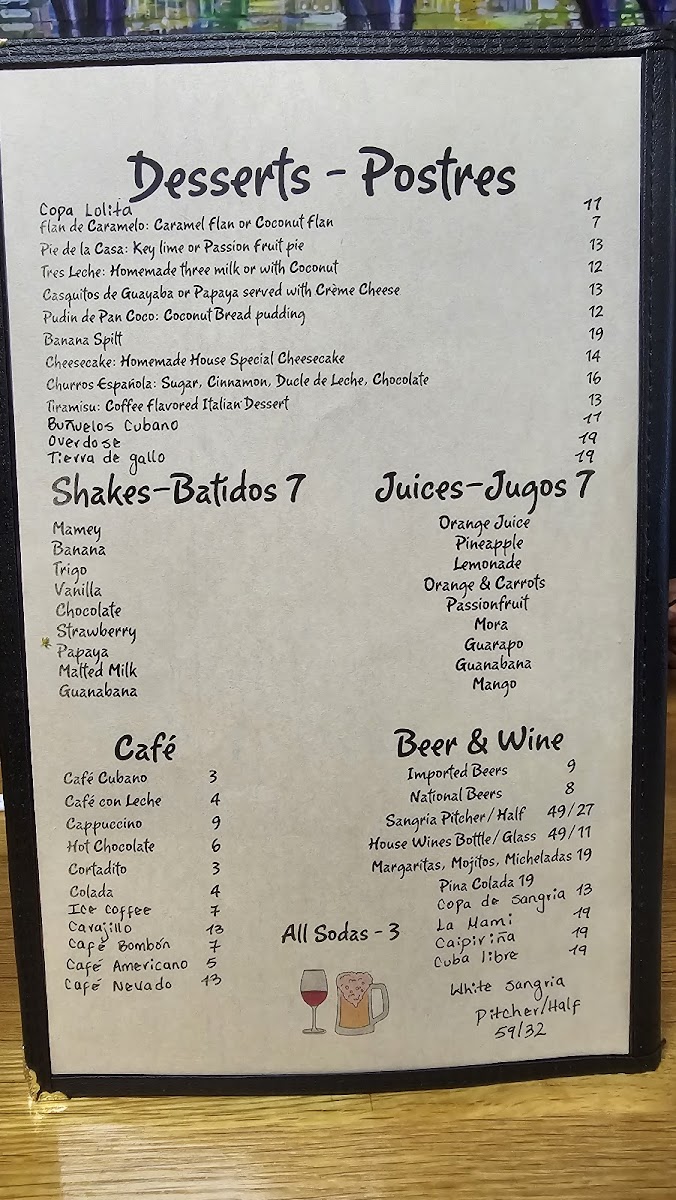 Desserts - Postres
Copa Lolita 11
Flan de Caramelo: Caramel Flan or Coconut Flan 7
Pie de la Casa: Key lime or Passion Fruit pie 13
Tres Leche: Homemade three milk or with Coconut 12
Casquitos de Guayaba or Papaya served with Crème Cheese 13
Pudin de Pan Coco: Coconut Bread pudding 12
Banana Spilt 19
Cheesecake: Homemade House Special Cheesecake 14
Churros Española: Sugar, Cinnamon, Ducle de Leche, Chocolate 16
Tiramisu: Coffee flavored Italian Dessert 13
Buñuelos Cubano 11
Overdose 19
Tierra de gallo 19
Shakes-Batidos 7
Mamey
Banana
Trigo
Vanilla
Chocolate
Strawberry
Papaya
Malted Milk
Guanabana
Juices-Jugos 7
Orange Juice
Pineapple
Lemonade
Orange & Carrots
Passionfruit
Mora
Guarapo
Guanabana
Mango
Café
Café Cubano 3
Café con Leche 4
Cappuccino 9
Hot Chocolate 6
Cortadito 3
Colada 4
Ice coffee 7
Carajillo 13
Café Bombón 7
Café Americano 5
Café Nevado 13
All Sodas - 3
Beer & Wine
Imported Beers 9
National Beers 8
Sangria Pitcher/Half 49/27
House Wines Bottle/Glass 49/11
Margaritas, Mojitos, Micheladas 19
Pina Colada 19
Copa de sangria 13
La Mami 19
Caipiriña 19
Cuba libre 19
White sangria
Pitcher/Half
59/32